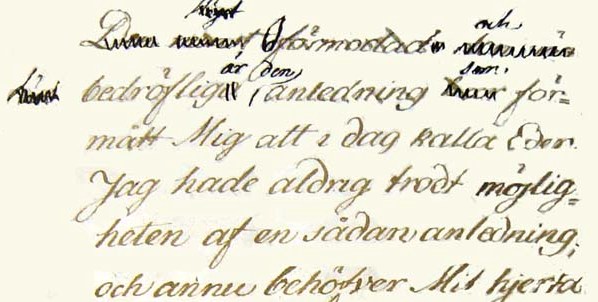 högst och
Oförmodad
är (den) som
bedröfliga anledning för=
mått Mig att i dag kalla Eder.
Jag hade aldrig trodt möjlig=
heten af en sådan anledning,
och ännu behöfver Mit hjerta